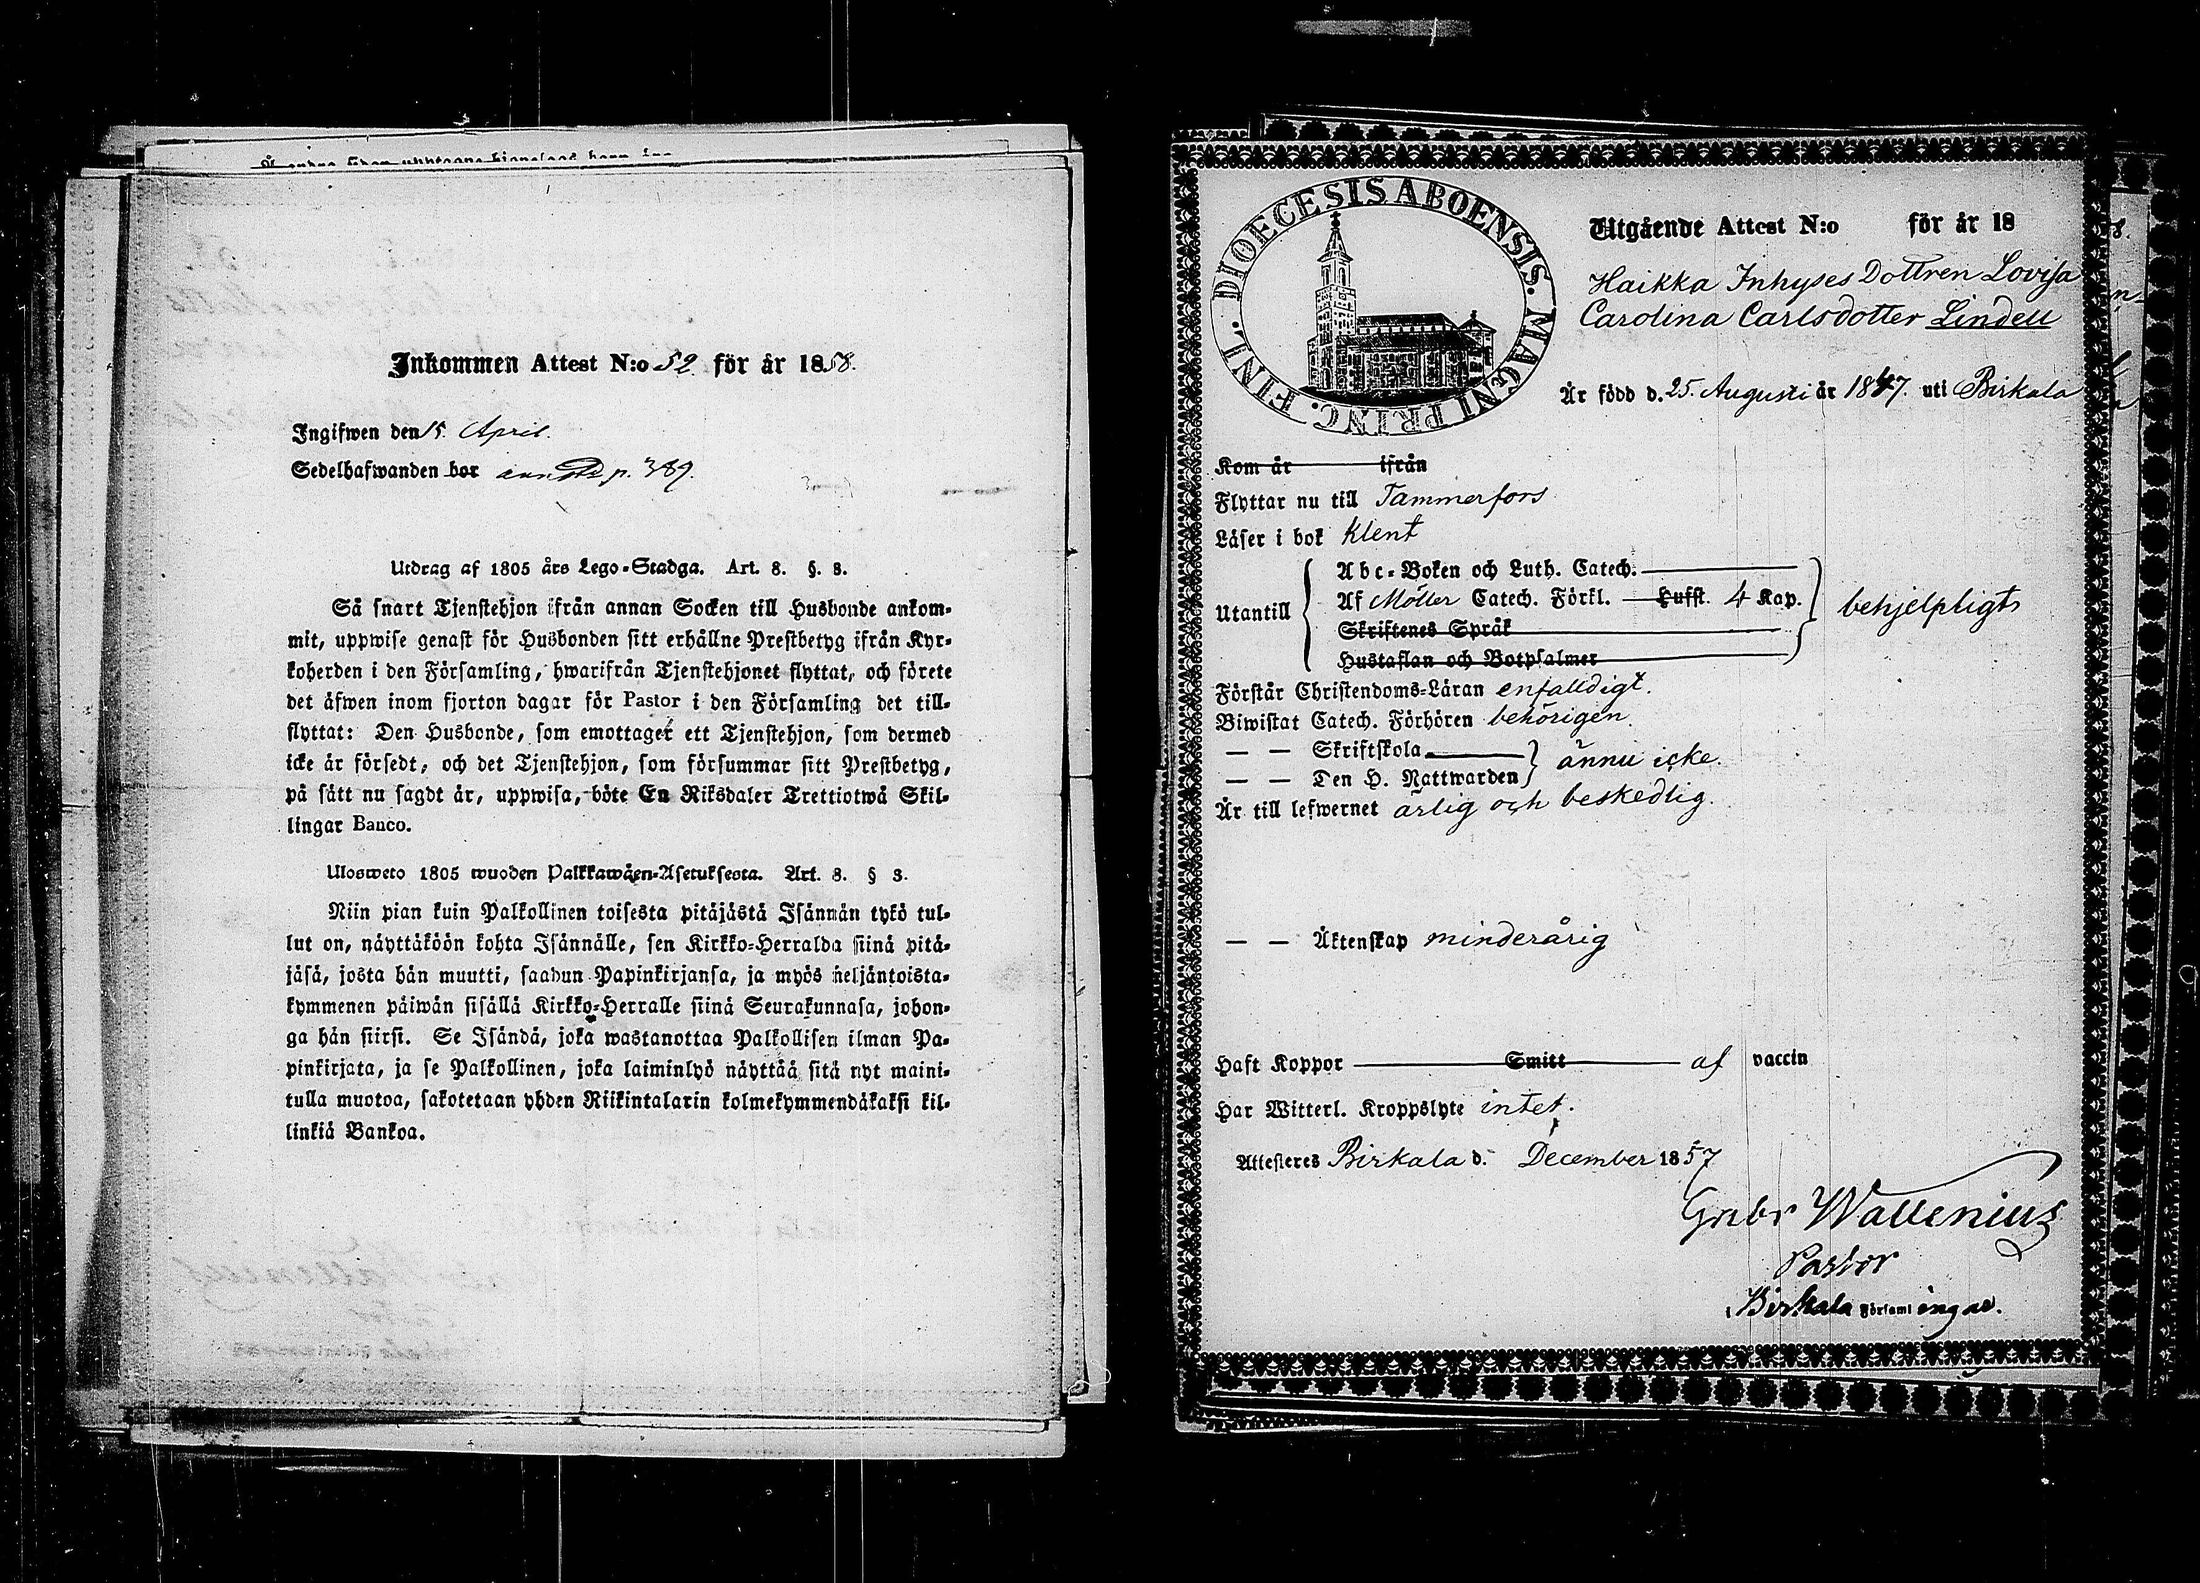 Inkommen Attest N:o 52 för år 1858.
Ingifwen den 15. April.
Sedelhafwanden bor p. 389.
Utdrag af 1805 års Lego-Stadga. Art. 8. §. 8.
Så snart Tjenstehjon ifrån annan Socken till Husbonde ankom-
mit, uppwise genast för Husbonden sitt erhållne Prestbetyg ifrån Kyr-
koherden i den Församling, hwarifrån Tjenstehjonet flyttat, och förete
det äfwen inom fjorton dagar för Pastor i den Församling det till-
flyttat: Den Husbonde, som emottager ett Tjenstehjon, som dermed
icke är försedt, och det Tjenstehjon, som försummar sitt Prestbetyg,
på sätt nu sagdt är, uppwisa, böte En Riksdaler Trettiotwå Skil-
lingar Banco.
Ulosweto 1805 wuoden Palkkawäen-Asetuksesta. Art. 8. § 8.
Niin pian kuin Palkollinen toisesta pitäjästä Isännän tykö tul-
lut on, näyttäköön kohta Isännälle, sen Kirkko-Herralda siinä pitä-
jäsä, josta hän muutti, saadun Papinkirjansa, ja myös neljäntoista-
kymmenen päiwän sisällä Kirkko-Herralle siinä Seurakunnasa, johon-
ga hän siirsi. Se Isändä, joka wastanottaa Palkollisen ilman Pa-
pinkirjata, ja se Palkollinen, joka laiminlyö näyttää sitä nyt maini-
tulla muotoa, sakotetaan yhden Riikintalarin kolmekymmendäkaksi kil-
linkiä Bankoa.
DIOECESIS ABOENSIS. MAGNI PRINC. FINL.
Utgående Attest N:o för år 18
Haikka Inhyses Dottren Lovisa
Carolina Carlsdotter Lindell
Är född d. 25. Augusti år 1847. uti Birkala
Kom år ifrån
Flyttar nu till Tammerfors
Läser i bok klent
Utantill
Abc-Boken och Luth. Catech.
Af Möller Catech. Förkl. Hufst. 4 Kap.
Skriftenes Språk
Hustaflan och Botpsalmer
behjelpligts
Förstår Christendoms-Läran enfalldigt.
Biwistat Catech. Förhören behörigen.
— — Skriftskola
— — Den H. Nattwarden
ännu icke.
Är till lefwernet ärlig och beskedlig.
— — Äktenskap minderårig
Haft Koppor Smitt af vaccin
Har Witterl. Kroppslyte intet.
Attesteres Birkala d. December 1857
Gabr Wallenius
Pastor
Birkala Församlingar.